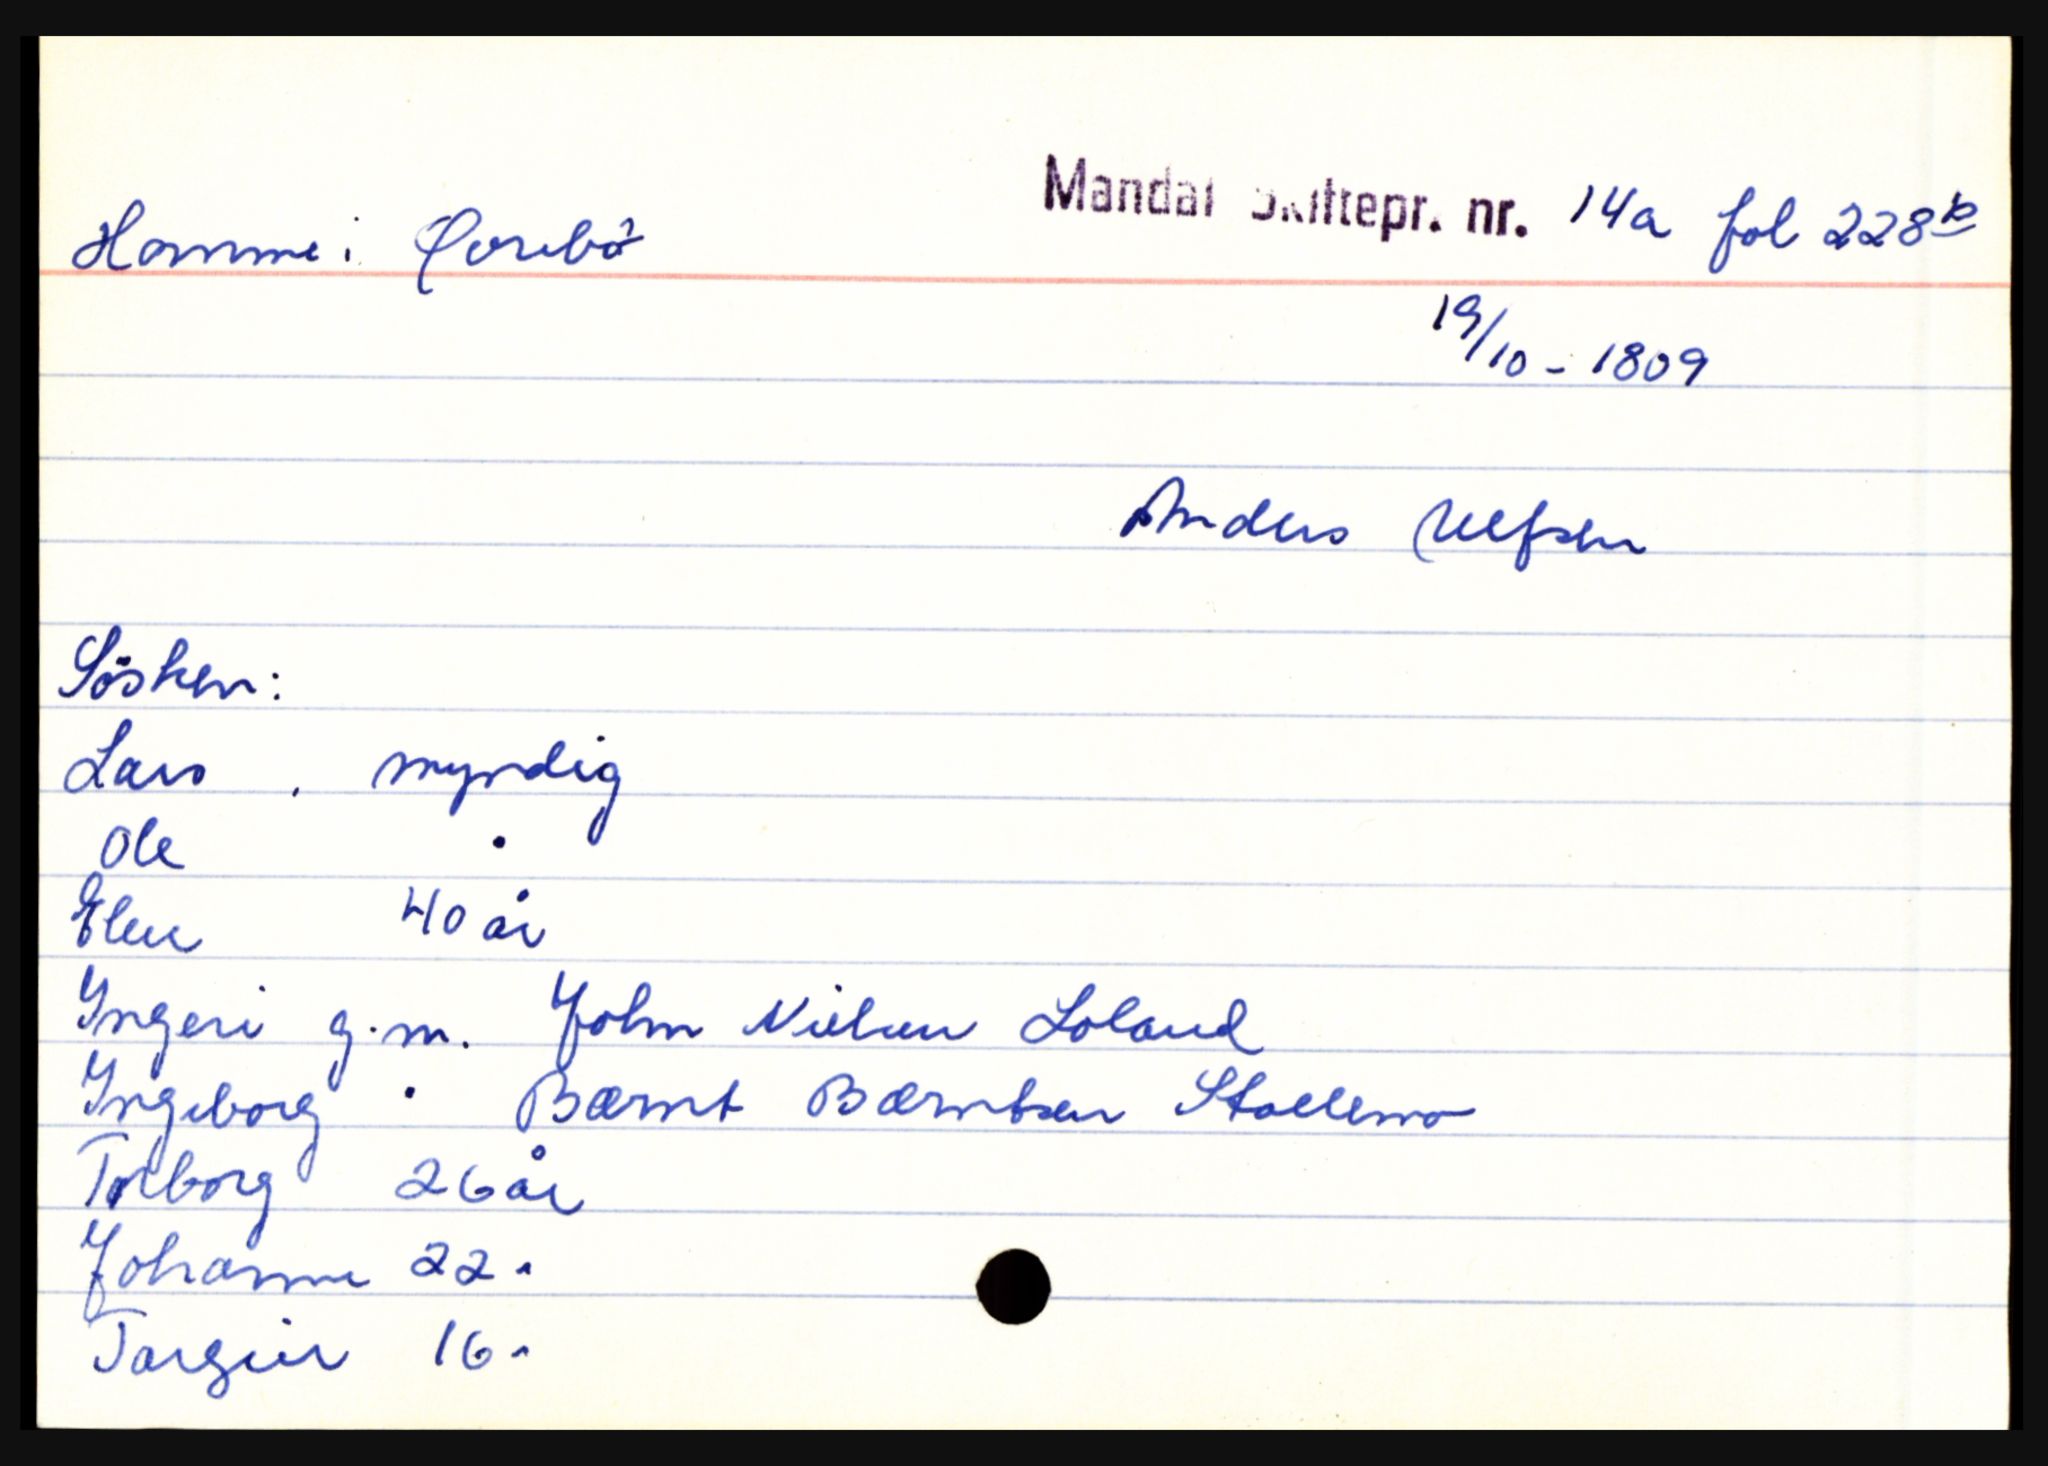 Homme i Øvrebø
Mandal Skiftepr. nr. 14a fol 228b
19/10 - 1809
Anders Ulfsen
Søsken:
Lars , myndig
Ole "
Elen 40 år
Yngeri g.m. John Nielsen Loland
Yngeborg " Bærnt Bærntsen Stallemo
Torborg 26 år
Johanne 22 "
Targier 16 "